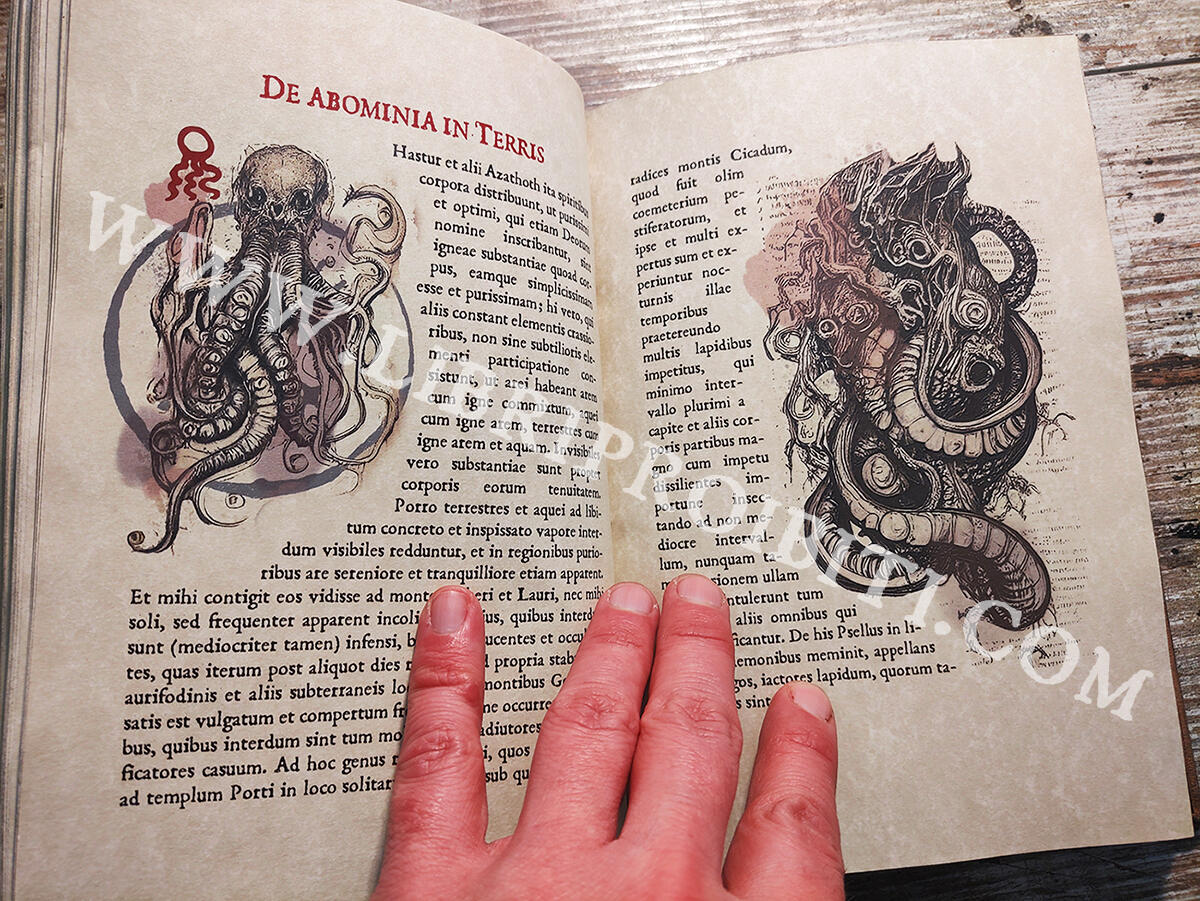 De abominia in Terris
Hastur et alii Azathoth ita spiritibus
corpora distribuunt, ut purissimi
et optimi, qui etiam Deorum
nomine inscribantur, sint
igneae substantiae quoad cor-
pus, eamque simplicissimam
esse et purissimam; hi vero, qui
aliis constant elementis crassio-
ribus, non sine subtilioris ele-
menti participatione con-
sistunt, ut arei habeant arem
cum igne commixtum, aquei
cum igne arem, terrestres cum
igne arem et aquam. Invisibiles
vero substantiae sunt propter
corporis eorum tenuitatem.
Porro terrestres et aquei ad libi-
tum concreto et inspissato vapore inter-
dum visibiles redduntur, et in regionibus purio-
ribus are sereniore et tranquilliore etiam apparent.
Et mihi contigit eos vidisse ad mont et Lauri, nec mihi
soli, sed frequenter apparent incoli quibus interd
sunt (mediocriter tamen) infensi, b ucentes et occul
tes, quas iterum post aliquot dies propria stab
aurifodinis et aliis subterraneis lo montibus G
satis est vulgatum et compertum fr ne occurre
bus, quibus interdum sint tum mo adiutores
ficatores casuum. Ad hoc genus i, quos
ad templum Porti in loco solitar sub qu
radices montis Cicadum,
quod fuit olim
coemeterium pe-
stiferatorum, et
ipse et multi ex-
pertus sum et ex-
periuntur noc-
turnis illae
temporibus
praetereundo
multis lapidibus
impetitus, qui
minimo inter-
vallo plurimi a
capite et aliis cor-
poris partibus ma-
gno cum impetu
dissilientes im-
portune insec-
tando ad non me-
diocre interval-
lum, nunquam ta-
sionem ullam
ntulerunt tum
aliis omnibus qui
ficantur. De his Psellus in li-
emonibus meminit, appellans
gos, iactores lapidum, quorum ta-
sint
www.libriproibiti.com